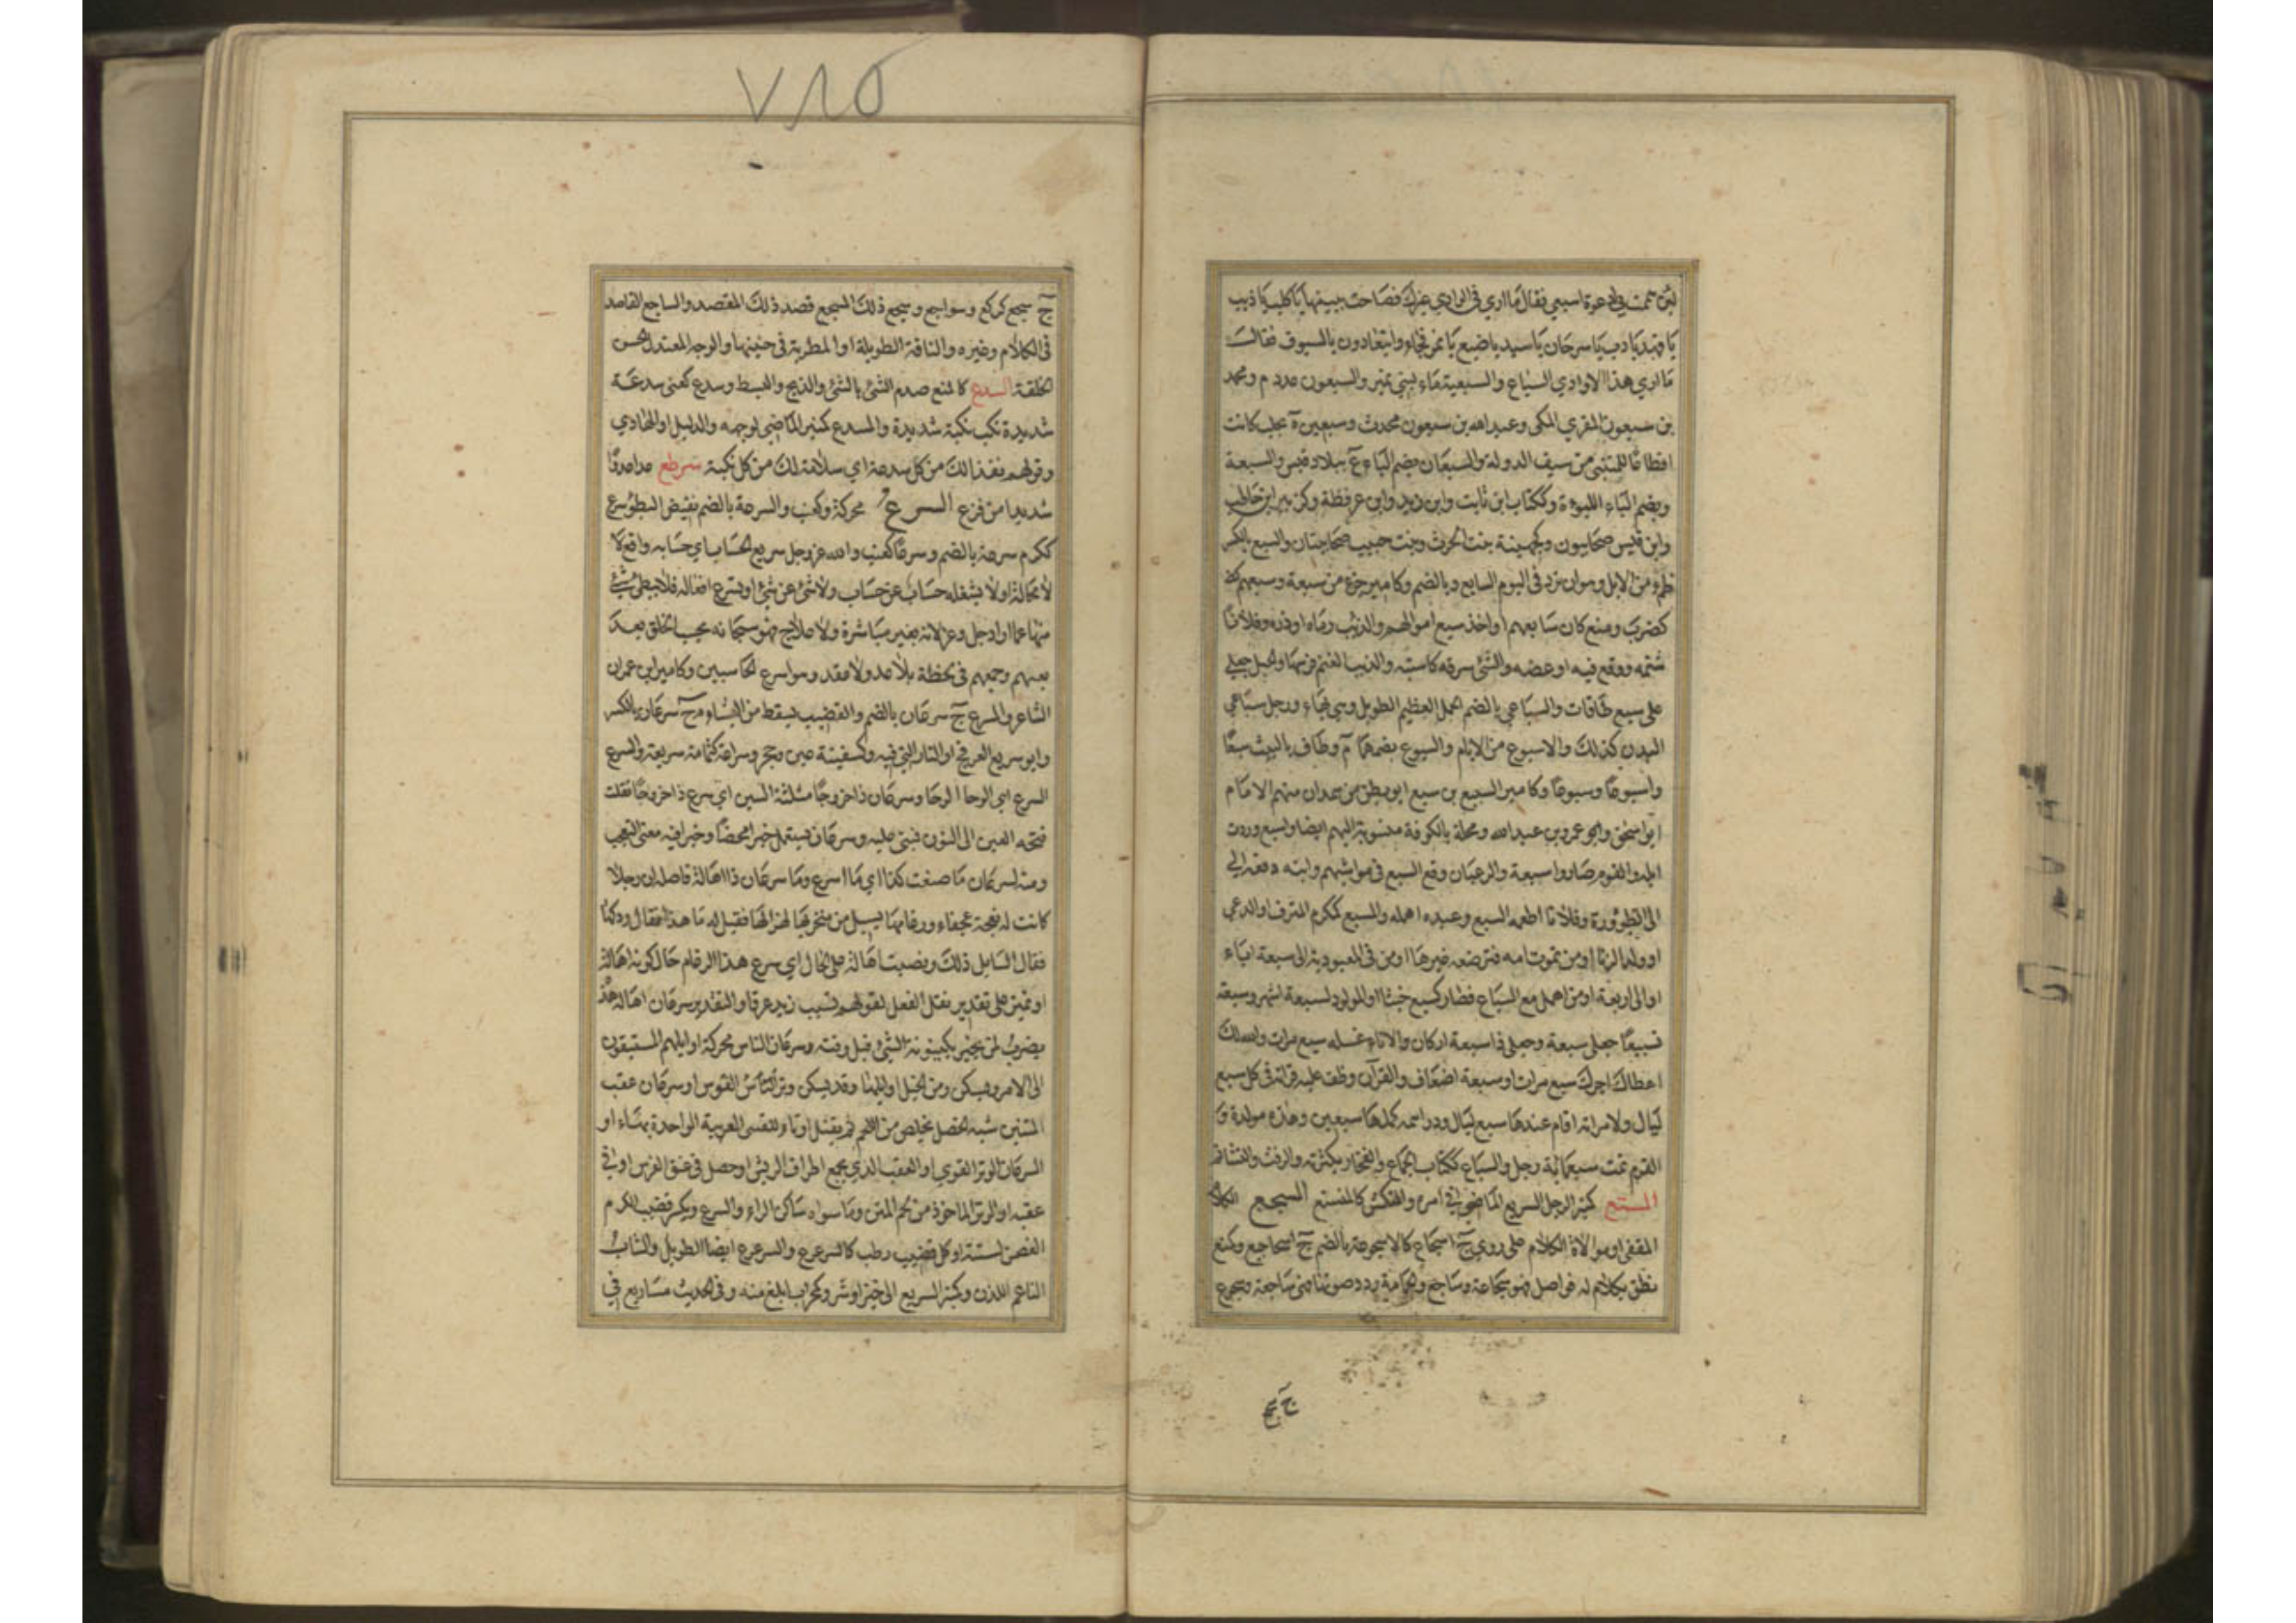 لئن هممت في لادعون اسبعي فقال ما اري في الوادي غيرك فصاحت ببنيها يا كلب يا ذيب
يا فهد يا دب يا سرحان يا سيد يا ضبع يا نمر فجاءوا يتعادون بالسيوف فقالت
ما اري هذا الا وادي السباع والسبعية ماء لبني نمير والسبعون عدد م ومحمد
بن سبعون المقري المكي وعبد الله بن سبعون محدث وسبعين ة بحلب كانت
اقطاعا للمتنبي من سيف الدولة والسبعان بضم الباء ع ببلاد قيس والسبعة
وبضم الباء اللبوءة وككتاب ابن ثابت وابن زيد وابن عرفطة وكزبير ابن حاطب
وابن قيس صحابيون وكجهينة بنت الحرث وبنت حبيب صحابيتان والسبع بالكسر
ظمء من الابل وهو ان ترد في اليوم السابع وبالضم وكامير جزء من سبعة وسبعهم
كضرب ومنع كان سابعهم او اخذ سبع اموالهم والذئب رماه او ذعره وفلانا
شتمه ووقع فيه او عضه والشئ سرقه كاستبعه والذيب الغنم فرسها والحبل جعله
على سبع طاقات والسباعي بالضم الجمل العظيم الطويل وهي بهاء ورجل سباعي
البدن كذلك والاسبوع من الايام والسبوع بضمهما م وطاف بالبيت سبعا
واسبوعا وسبوعا وكامير السبيع بن سبع ابو بطن من همدان منهم الامام
ابو اسحق وابو عمرو بن عبد الله ومحلة بالكوفة منسوبة اليهم ايضا واسبع وردت
ابله والقوم صاروا سبعة والرعيان وقع السبع في مواشيهم وابنه دفعه الي
الى الظؤورة وفلانا اطعمه السبع وعبده اهمله والمسبع كمكرم المترف او الدعي
او ولد الزنا او من تموت امه فترضعه غيرها او من في العبودية الى سبعة اباء
او الى اربعة او من اهمل مع السباع فصار كسبع خبثا او المولود لسبعة اشهر وسبعه
تسبيعا جعله سبعة وجعله ذا سبعة اركان والاناء غسله سبع مرات والله لك
اعطاك اجرك سبع مرات او سبعة اضعاف والقرآن وظف عليه قراته في كل سبع
ليال ولامراته اقام عندها سبع ليال ودراهمه كملها سبعين وهذه مولدة و
القوم تمت سبعمائة رجل والسباع ككتاب الجماع والفخار بكثرته والرفث والتشاتم
المستع كمنبر الرجل السريع الماضي في امره والمنكمش كالمنستع السجع الكلام
المقفى او موالاة الكلام على روي ج اسجاع كالاسجوعة بالضم ج اساجيع وكمنع
نطق بكلام له فواصل فهو سجاعة وساجع والحمامة رددت صوتها فهي ساجعة وسجوع
ج سجع
٧١٥
ج سجع كركع وسواجع وسجع ذلك المسجع قصد ذلك المقصد والساجع القاصد
في الكلام وغيره والناقة الطويلة او المطربة في حنينها والوجه المعتدل الحسن
الخلقة السدع كالمنع صدم الشئ بالشئ والذبح والبسط وسدع كعني سدعة
شديدة نكب نكبة شديدة والمسدع كمنبر الماضي لوجهه والدليل او الهادي
وقولهم نقذا لك من كل سدعة اي سلامة لك من كل نكبة سرطع عدا عدوا
شديدا من فزع السرع محركة وكعنب والسرعة بالضم نقيض البطؤ سرع
ككرم سرعة بالضم وسرعا كعنب والله عز وجل سريع الحساب اي حسابه واقع لا
لا محالة او لا يشغله حساب عن حساب ولا شئ عن شئ او تسرع افعاله فلا يبطئ شئ
منها عما اراد جل وعز لانه بغير مباشرة ولا علاج فهو سبحانه يحاسب الخلق بعد
بعثهم وجمعهم في لحظة بلا عد ولا عقد وهو اسرع الحاسبين وكامير ابن عمران
الشاعر والمسرع ج سرعان بالضم والقضيب يسقط من البشام ج سرعان بالكسر
وابو سريع العرفج او النار التي فيه وكسفينة عين وحجر وسراعة كثمامة سريعة والسرع
السرع اي الوحا الوحا وسرعان ذا خروجا مثلثة السين اي سرع ذا خروجا نقلت
فتحة العين الى النون فبني عليه وسرعان يستعمل خبرا محضا وخبرا فيه معنى التعجب
ومنه لسرعان ما صنعت كذا اي ما اسرع وما سرعان ذا اهالة فاصله ان رجلا
كانت له نعجة عجفاء ورغامها يسيل من منخريها لهزالها فقيل له ما هذا فقال ودكها
فقال السايل ذلك ونصب اهالة على الحال اي سرع هذا الرغام حال كونه اهالة
او تمييز على تقدير نقل الفعل لقولهم تصبب زيد عرقا والتقدير سرعان اهالة هذه
يضرب لمن يخبر بكينونة الشئ قبل وقته وسرعان الناس محركة اوايلهم المستبقون
الى الامر ويسكن ومن الخيل اوايلها وقد يسكن وتر القوس او سرعان عقب
المتنين شبه الخصل تخلص من اللحم ثم تفتل اوتارا للقسي العربية الواحدة بهاء او
السرعان الوتر القوي او العقب الذي يجمع اطراف الريش او خصل في عنق الفرس او في
عقبه او الوتر الماخوذ من لحم المتن وما سواه ساكن الراء والسرع ويكسر قضيب الكرم
الغصن لسنته او كل قضيب رطب كالسرعرع والسرعرع ايضا الطويل والشاب
الناعم اللدن وكمنبر السريع الى خير او شر وكمحراب ابلغ منه وفي الحديث مساريع في